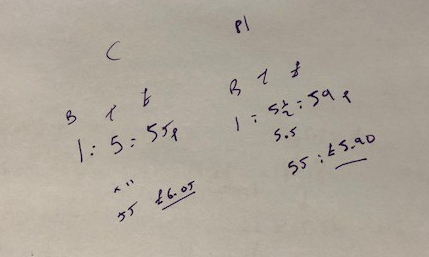 C
B T £
1 : 5 : 55p
× 11
55 £6.05
Pl
B T £
1 : 5½ : 59p
5.5
55 : £5.90